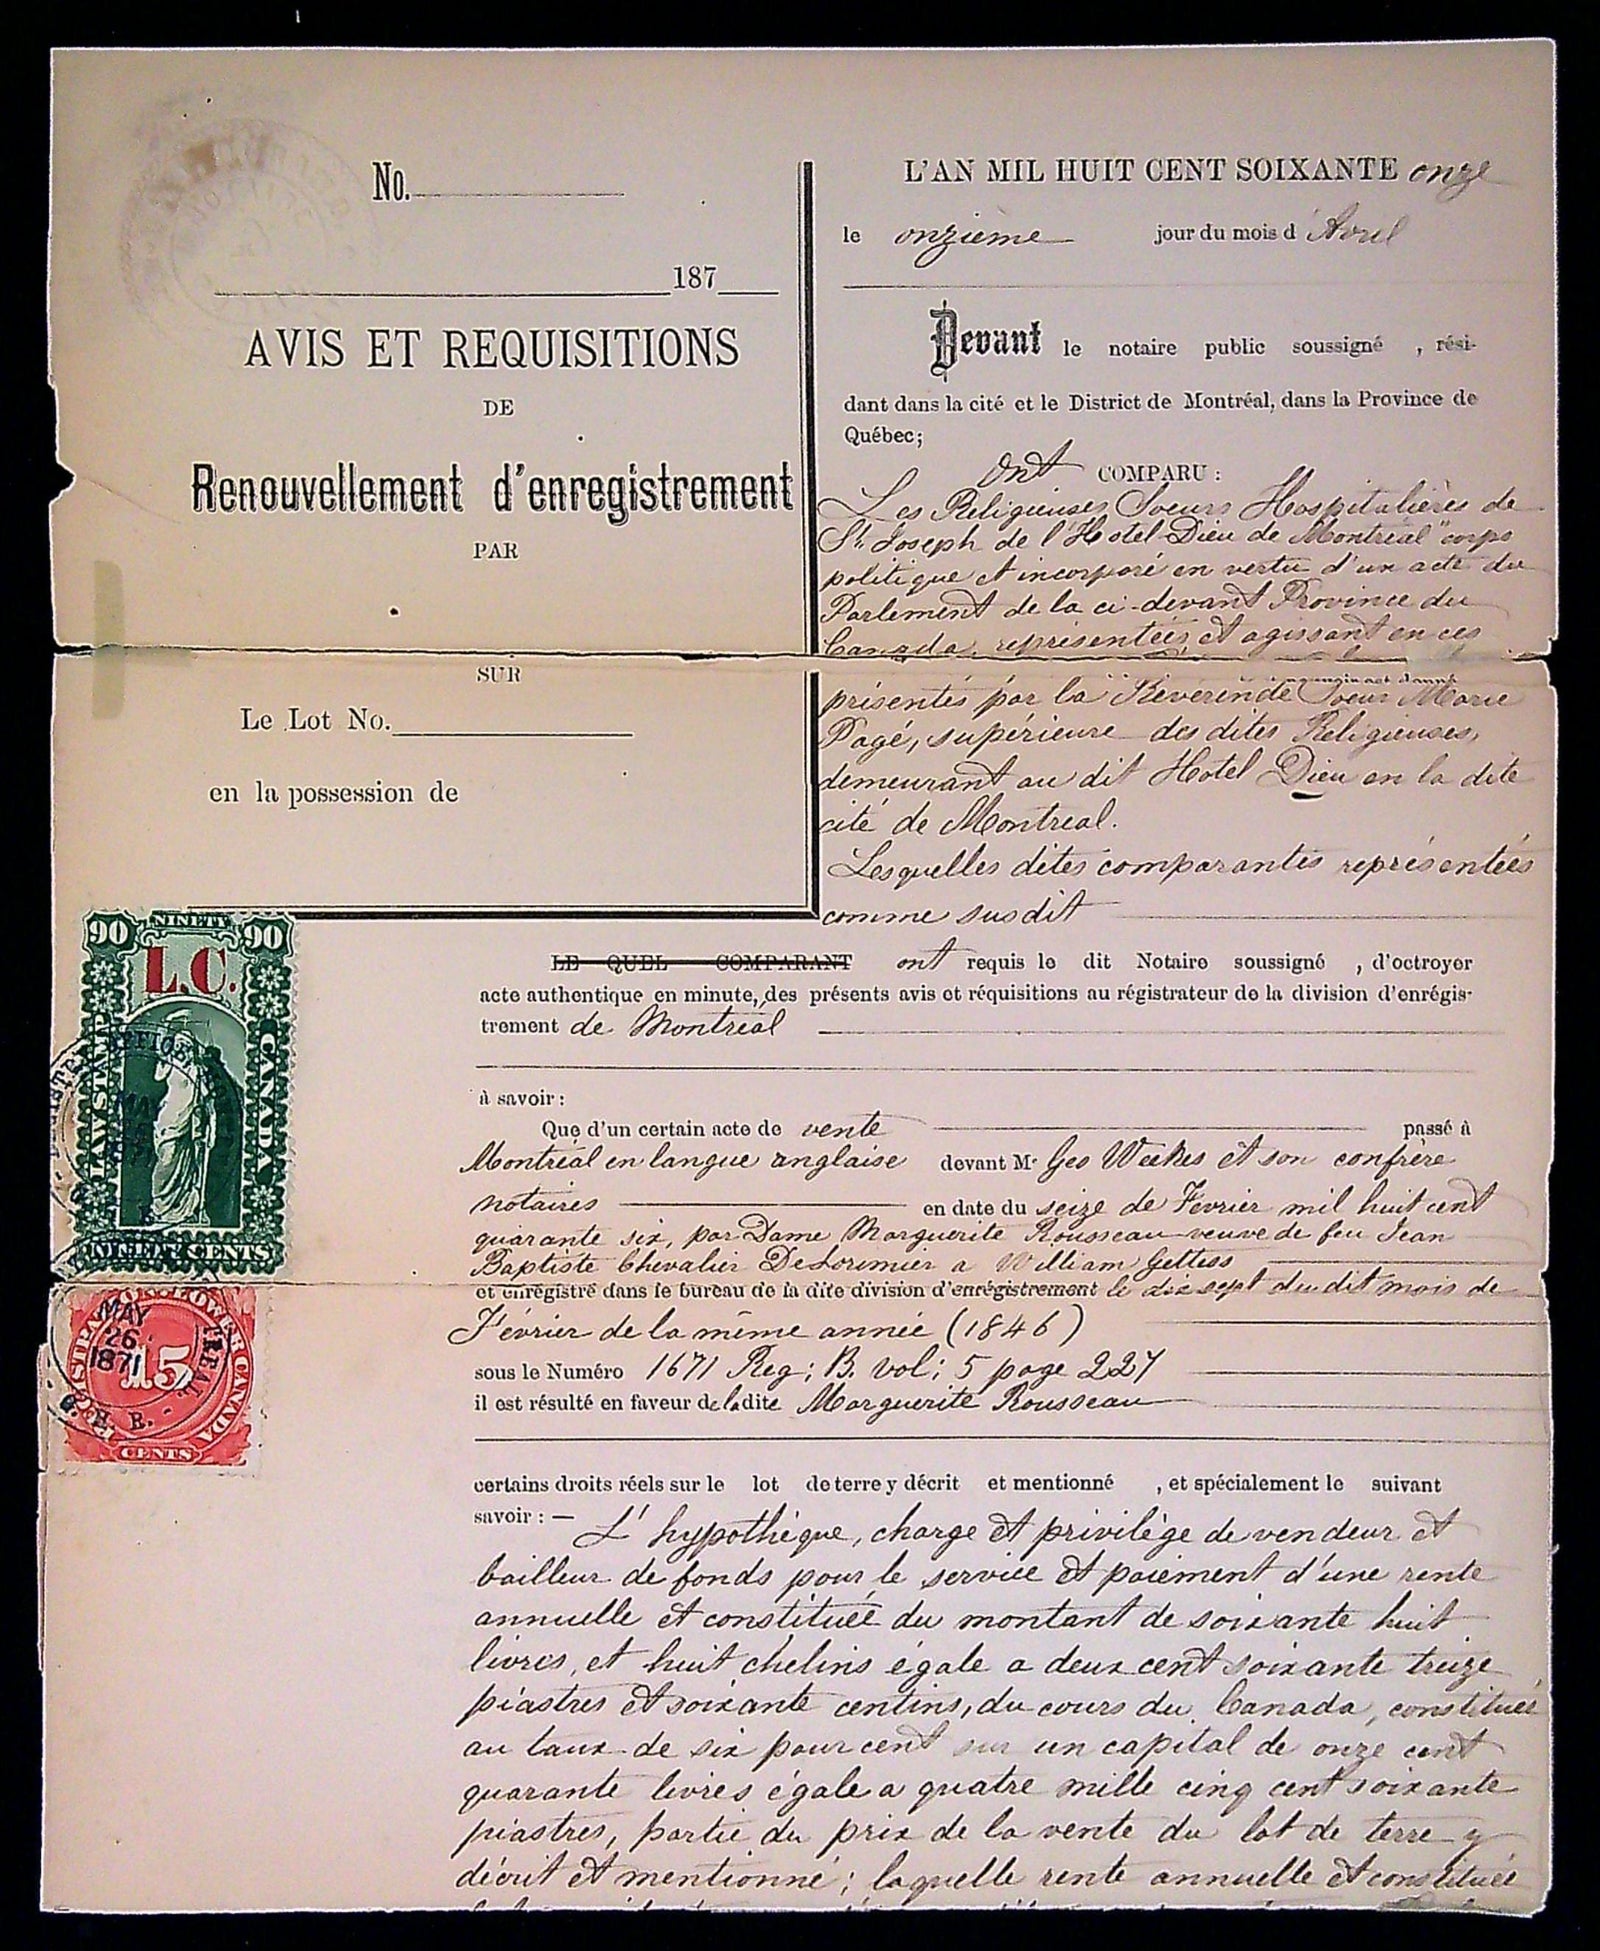 No.
187
AVIS ET REQUISITIONS
DE
Renouvellement d'enregistrement
PAR
SUR
Le Lot No.
en la possession de
L'AN MIL HUIT CENT SOIXANTE onze
le onzième jour du mois d'Avril
Devant le notaire public soussigné , rési-
dant dans la cité et le District de Montréal, dans la Province de
Québec;
Ont COMPARU :
Les Religieuses Soeurs Hospitalières de
St. Joseph de l'Hotel-Dieu de Montréal" corps
politique et incorporé en vertu d'un acte du
Parlement de la ci-devant Province du
Canada, représentées et agissant en ces
présentes par la Révérende Soeur Marie
Pagé, supérieure des dites Religieuses,
demeurant au dit Hotel Dieu en la dite
cité de Montreal.
Lesquelles dites comparantes représentées
comme susdit
LE QUEL COMPARANT ont requis le dit Notaire soussigné , d'octroyer
acte authentique en minute, des présents avis et réquisitions au régistrateur de la division d'enrégis-
trement de Montréal
à savoir :
Que d'un certain acte de vente passé à
Montréal en langue anglaise devant Mr Geo Weekes et son confrère
notaires en date du seize de Fevrier mil huit cent
quarante six, par Dame Marguerite Rousseau veuve de feu Jean
Baptiste Chevalier DeLorimier a William Gettess
et enrégistré dans le bureau de la dite division d'enrégistrement le dix sept du dit mois de
Février de la même année (1846)
sous le Numéro 1671 Reg; B. vol; 5 page 227
il est résulté en faveur de la dite Marguerite Rousseau
certains droits réels sur le lot de terre y décrit et mentionné , et spécialement le suivant
savoir : — L'hypothèque, charge et privilège de vendeur et
bailleur de fonds pour le service et paiement d'une rente
annuelle et constituée du montant de soixante huit
livres, et huit chelins égale a deux cent soixante treize
piastres et soixante centins, du cours du Canada, constituée
au taux de six pour cent sur un capital de onze cent
quarante livres égale a quatre mille cinq cent soixante
piastres, partie du prix de la vente du lot de terre y
décrit et mentionné ; laquelle rente annuelle et constituée
90 NINETY 90
L.C.
LAW STAMP
CANADA
NINETY CENTS
MAY
26
1871
15
CENTS